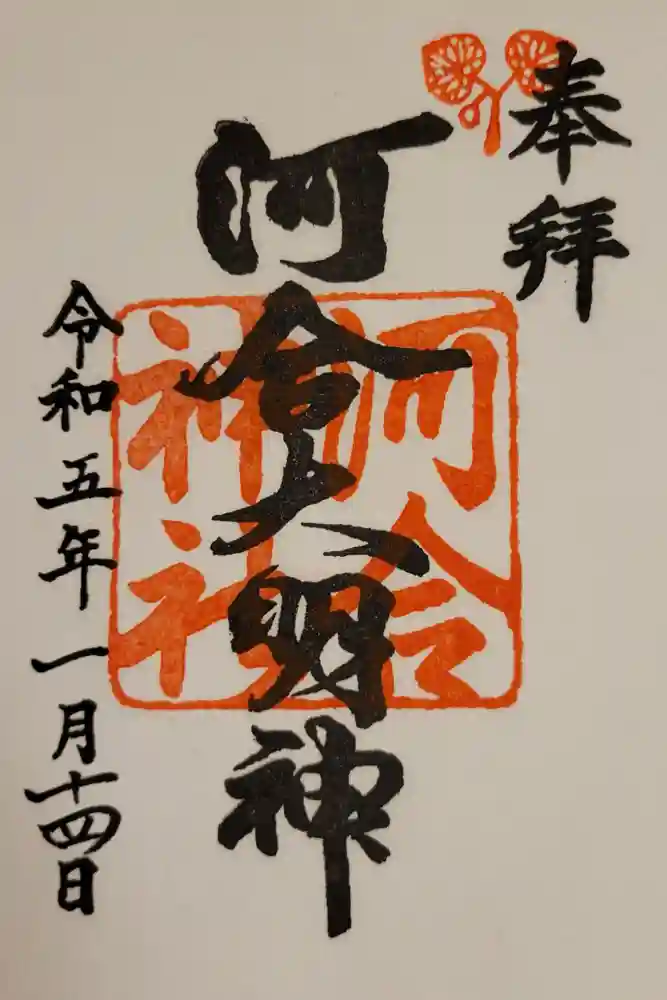 奉拝
河合大明神
河合
神社
令和五年一月十四日